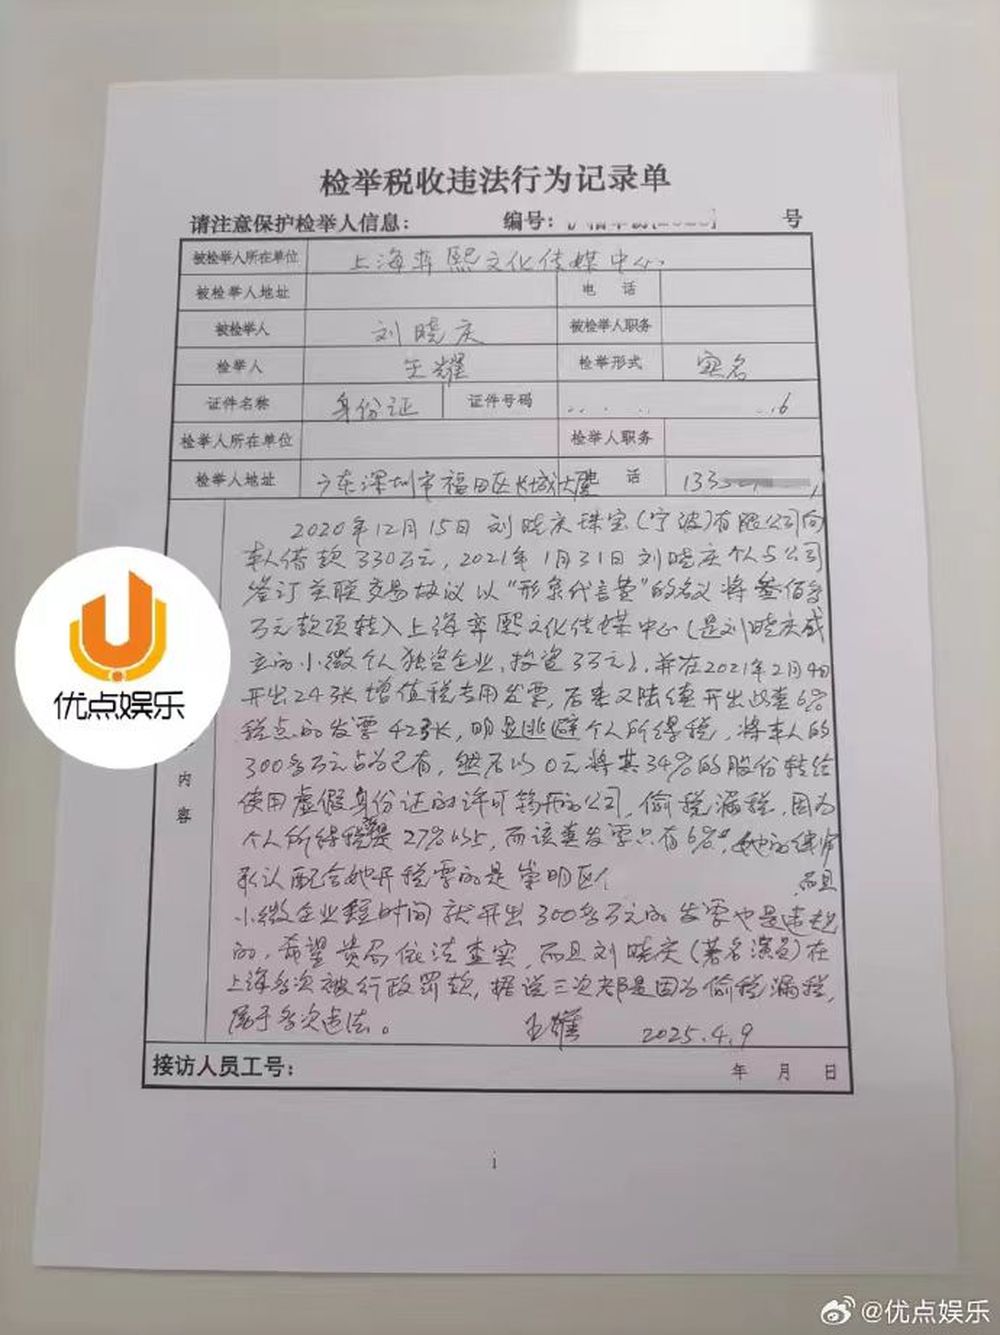 检举税收违法行为记录单
请注意保护检举人信息: 编号: 号
被检举人所在单位 上海弈熙文化传媒中心
被检举人地址 电 话
被检举人 刘晓庆 被检举人职务
检举人 王耀 检举形式 实名
证件名称 身份证 证件号码 6
检举人所在单位 检举人职务
检举人地址 广东深圳市福田区长城大 话 133
2020年12月15日 刘晓庆珠宝(宁波)有限公司向
本人借款330万元,2021年1月31日刘晓庆个人与公司
签订关联交易协议以“形象代言费”的名义将叁佰多
万元款项转入上海弈熙文化传媒中心(是刘晓庆成
立的小微个人独资企业,投资3万元),并在2021年2月4日
开出24张增值税专用发票,后来又陆续开出
税点的发票42张,明显逃避个人所得税,将本人的
300多万元占为己有,然后以0元将其34%的股份转给
使用虚假身份证的许可 的公司,偷税漏税,因为
个人所得税 是27%以上,而该查发票只有6%,她的律师
承认配合她开税票的是崇明区 而且
小微企业短时间就开出300多万元的发票也是违规
的,希望贵局依法查实,而且刘晓庆(著名演员)在
上海多次被行政罚款,据说三次都是因为偷税漏税,
属于多次违法。 王耀 2025.4.9
内
容
接访人员工号: 年 月 日
1
优点娱乐
@优点娱乐